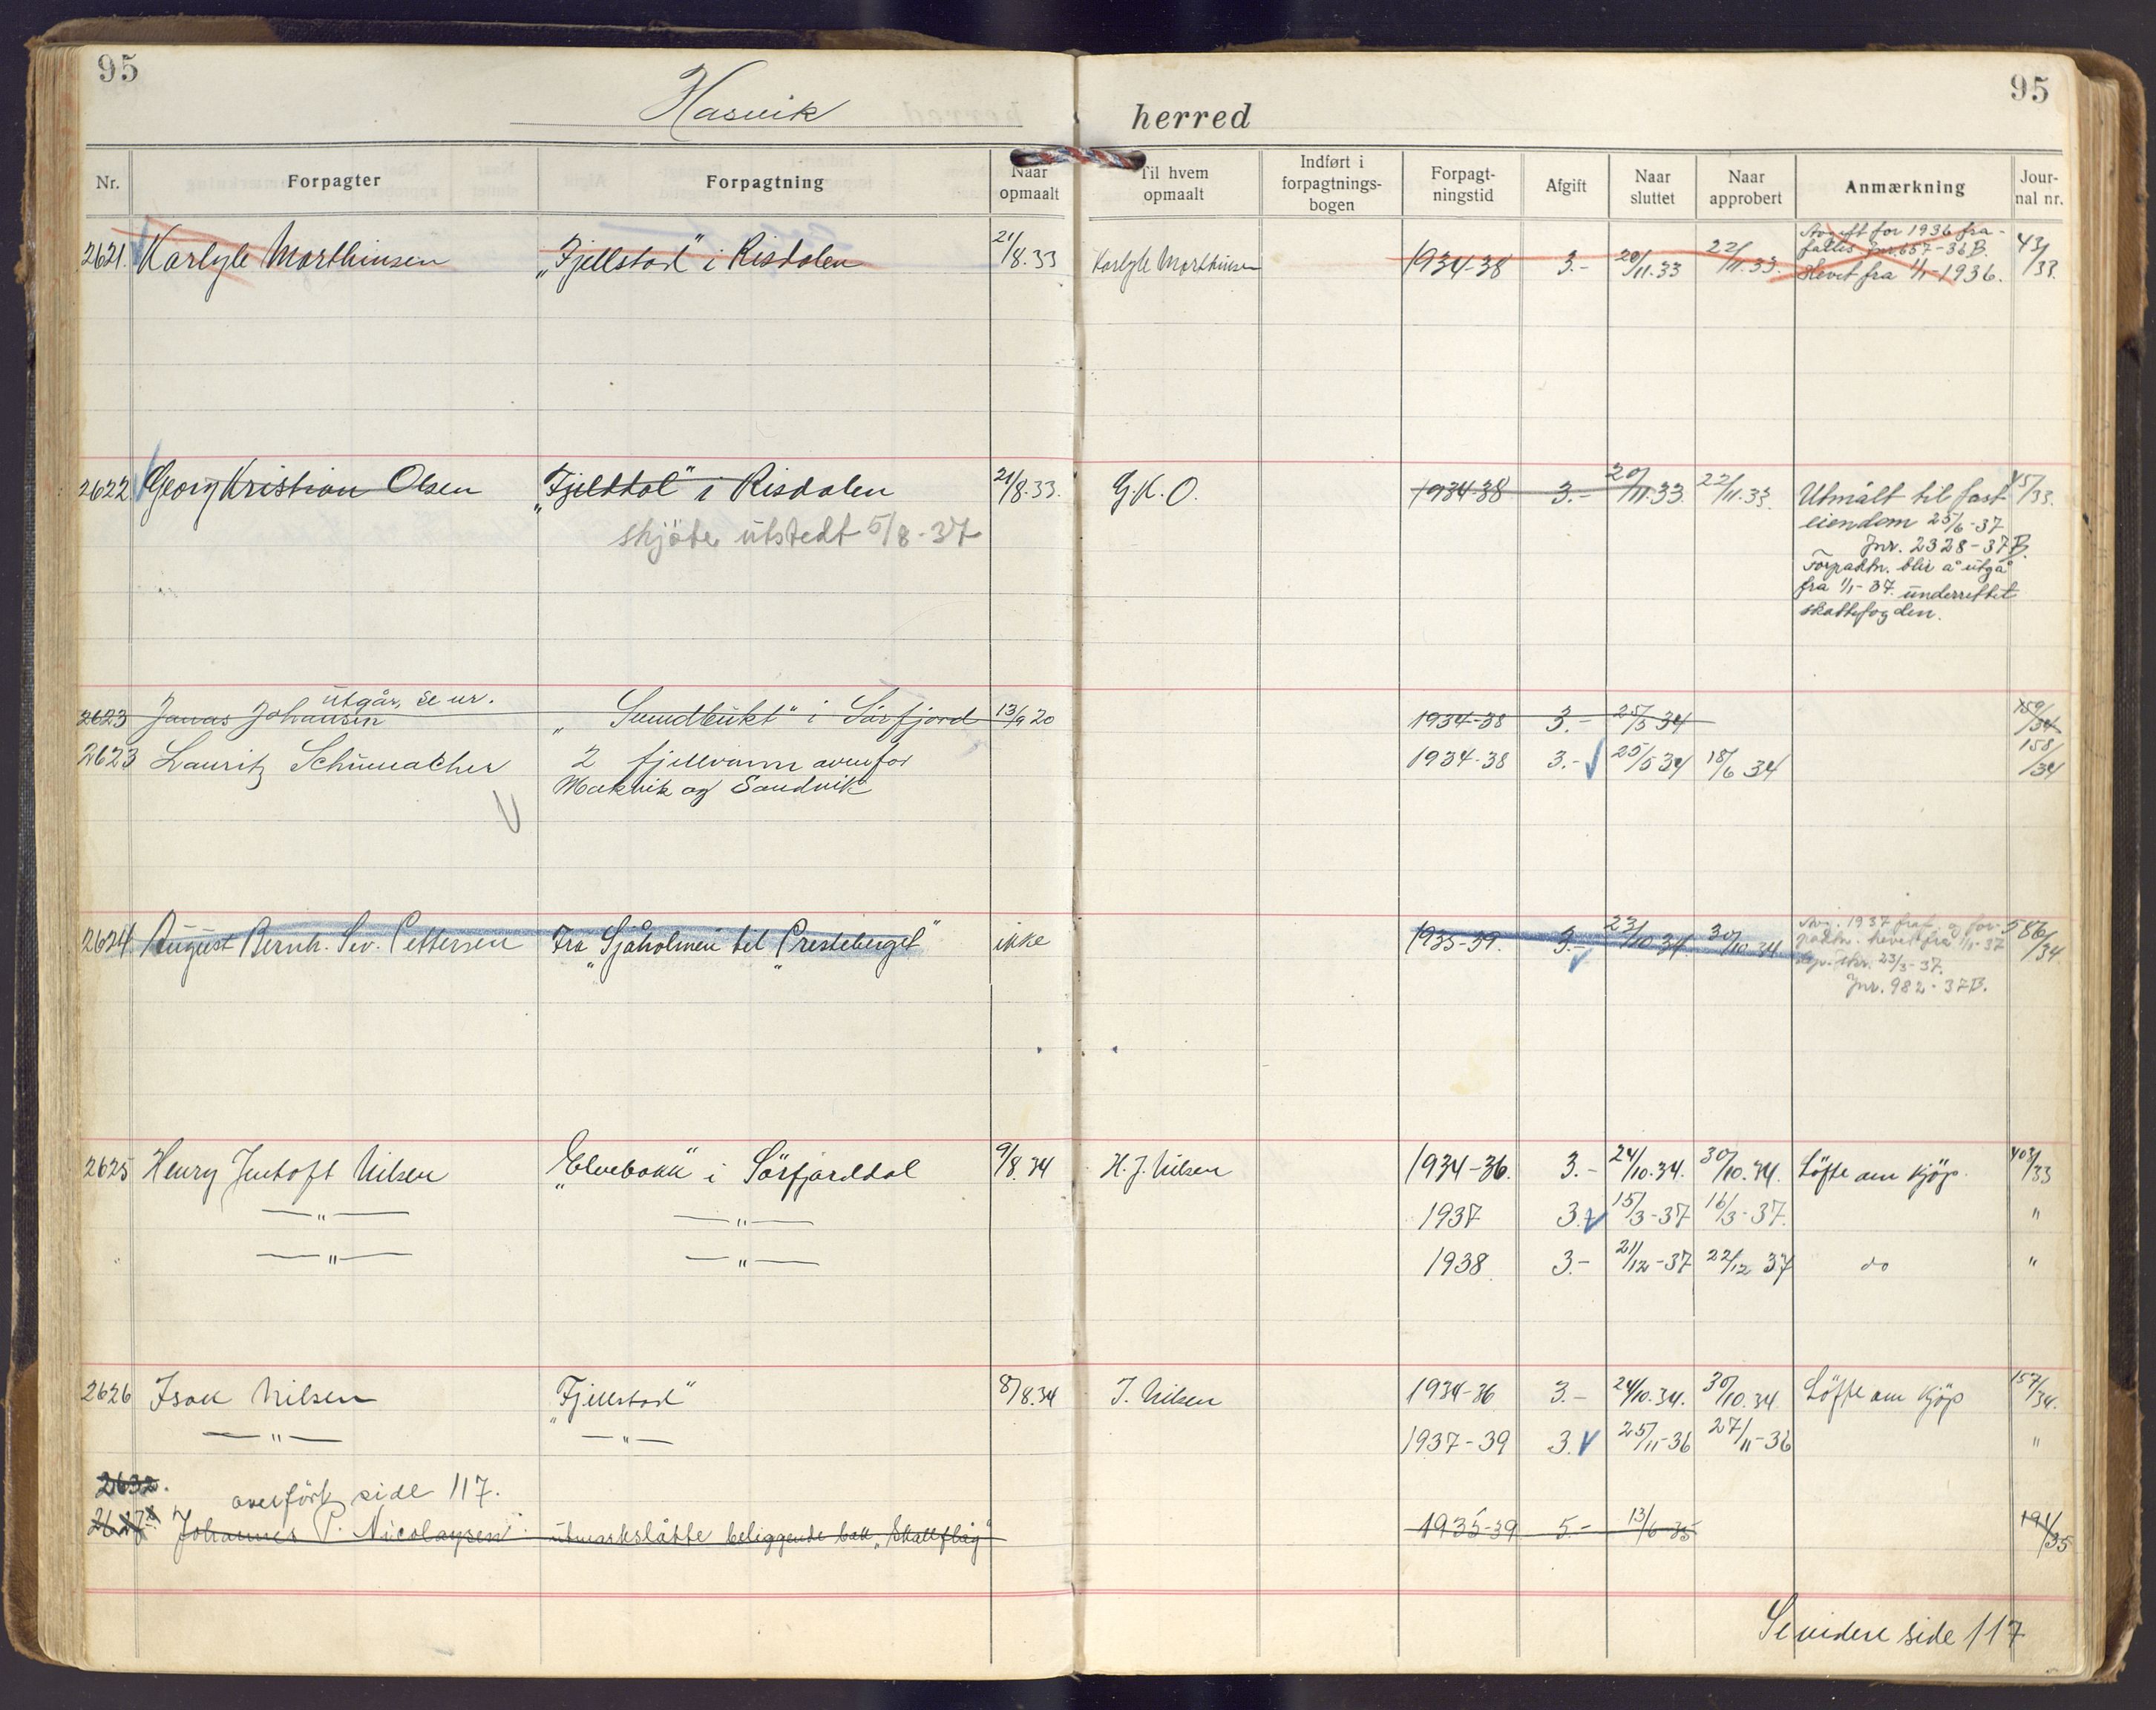 95
95
Hasvik herred
Nr. Forpagter Forpagtning Naar opmaalt Til hvem opmaalt Indført i forpagtnings-bogen Forpagt-ningstid Afgift Naar sluttet Naar approbert Anmærkning Jour-nal nr.
2621. Karlyle Marthinsen „Fjellstad" i Risdalen 21/8.33 Karlyle Marthinsen 1934-38 3.- 20/11.33 22/11.33. Avgift for 1936 fra- 43/33.
falles. Jnr. 657-36 B.
Hevet fra 1/1-1936.
2622. Georg Kristian Olsen „Fjelldal" i Risdalen 21/8.33. G.K.O. 1934-38 3.- 20/11.33 22/11.33. Utmålt til fast 45/33.
skjøte utstedt 5/8-37
eiendom 25/6-37
Jnr. 2328-37 B.
Forpaktn. blir å utgå
fra 1/1-37. underrettet
skattefogden.
utgår, se nr.
2623 Jonas Johansen „Sundbukt" i Sörfjord 13/9 20 1934-38 3.- 25/5 34 159/34
2623 Lauritz Schumacher 2 fjellvann ovenfor 1934-38 3.- 25/5 34 18/6 34 158/34
Makvik og Sandvik
2624. August Bernh. Sev. Pettersen Fra „Sjåholmen til „Presteberget" ikke 1935-39. 3.- 23/10 34. 30/10.34 Avg. 1937 fraf. og for- 586/34
paktn. hevet fra 1/1-37
23/3-37.
Jnr. 982-37B.
2625 Henry Jentoft Nilsen „Elvebakk" i Sörfjorddal 9/8.34 H.J. Nilsen 1934-36. 3.- 24/10.34. 30/10.34. Löfte om kjöp. 403/33
—"— —"— 1937 3.- 15/3-37 16/3-37. "
—"— —"— 1938 3.- 21/12-37 22/12 37 do "
2626 Isak Nilsen „Fjellstad" 8/8.34 I. Nilsen 1934-36 3.- 24/10.34. 30/10.34 Löfte om kjöp 157/34.
—"— —"— 1937-39 3. 25/11-36 27/11-36 "
2632.
overfört side 117.
2627 Johannes P. Nicolaysen utmarkslåtte beliggende bak „Skallflåg" 1935-39 5.- 13/6-35 191/35
Se videre side 117